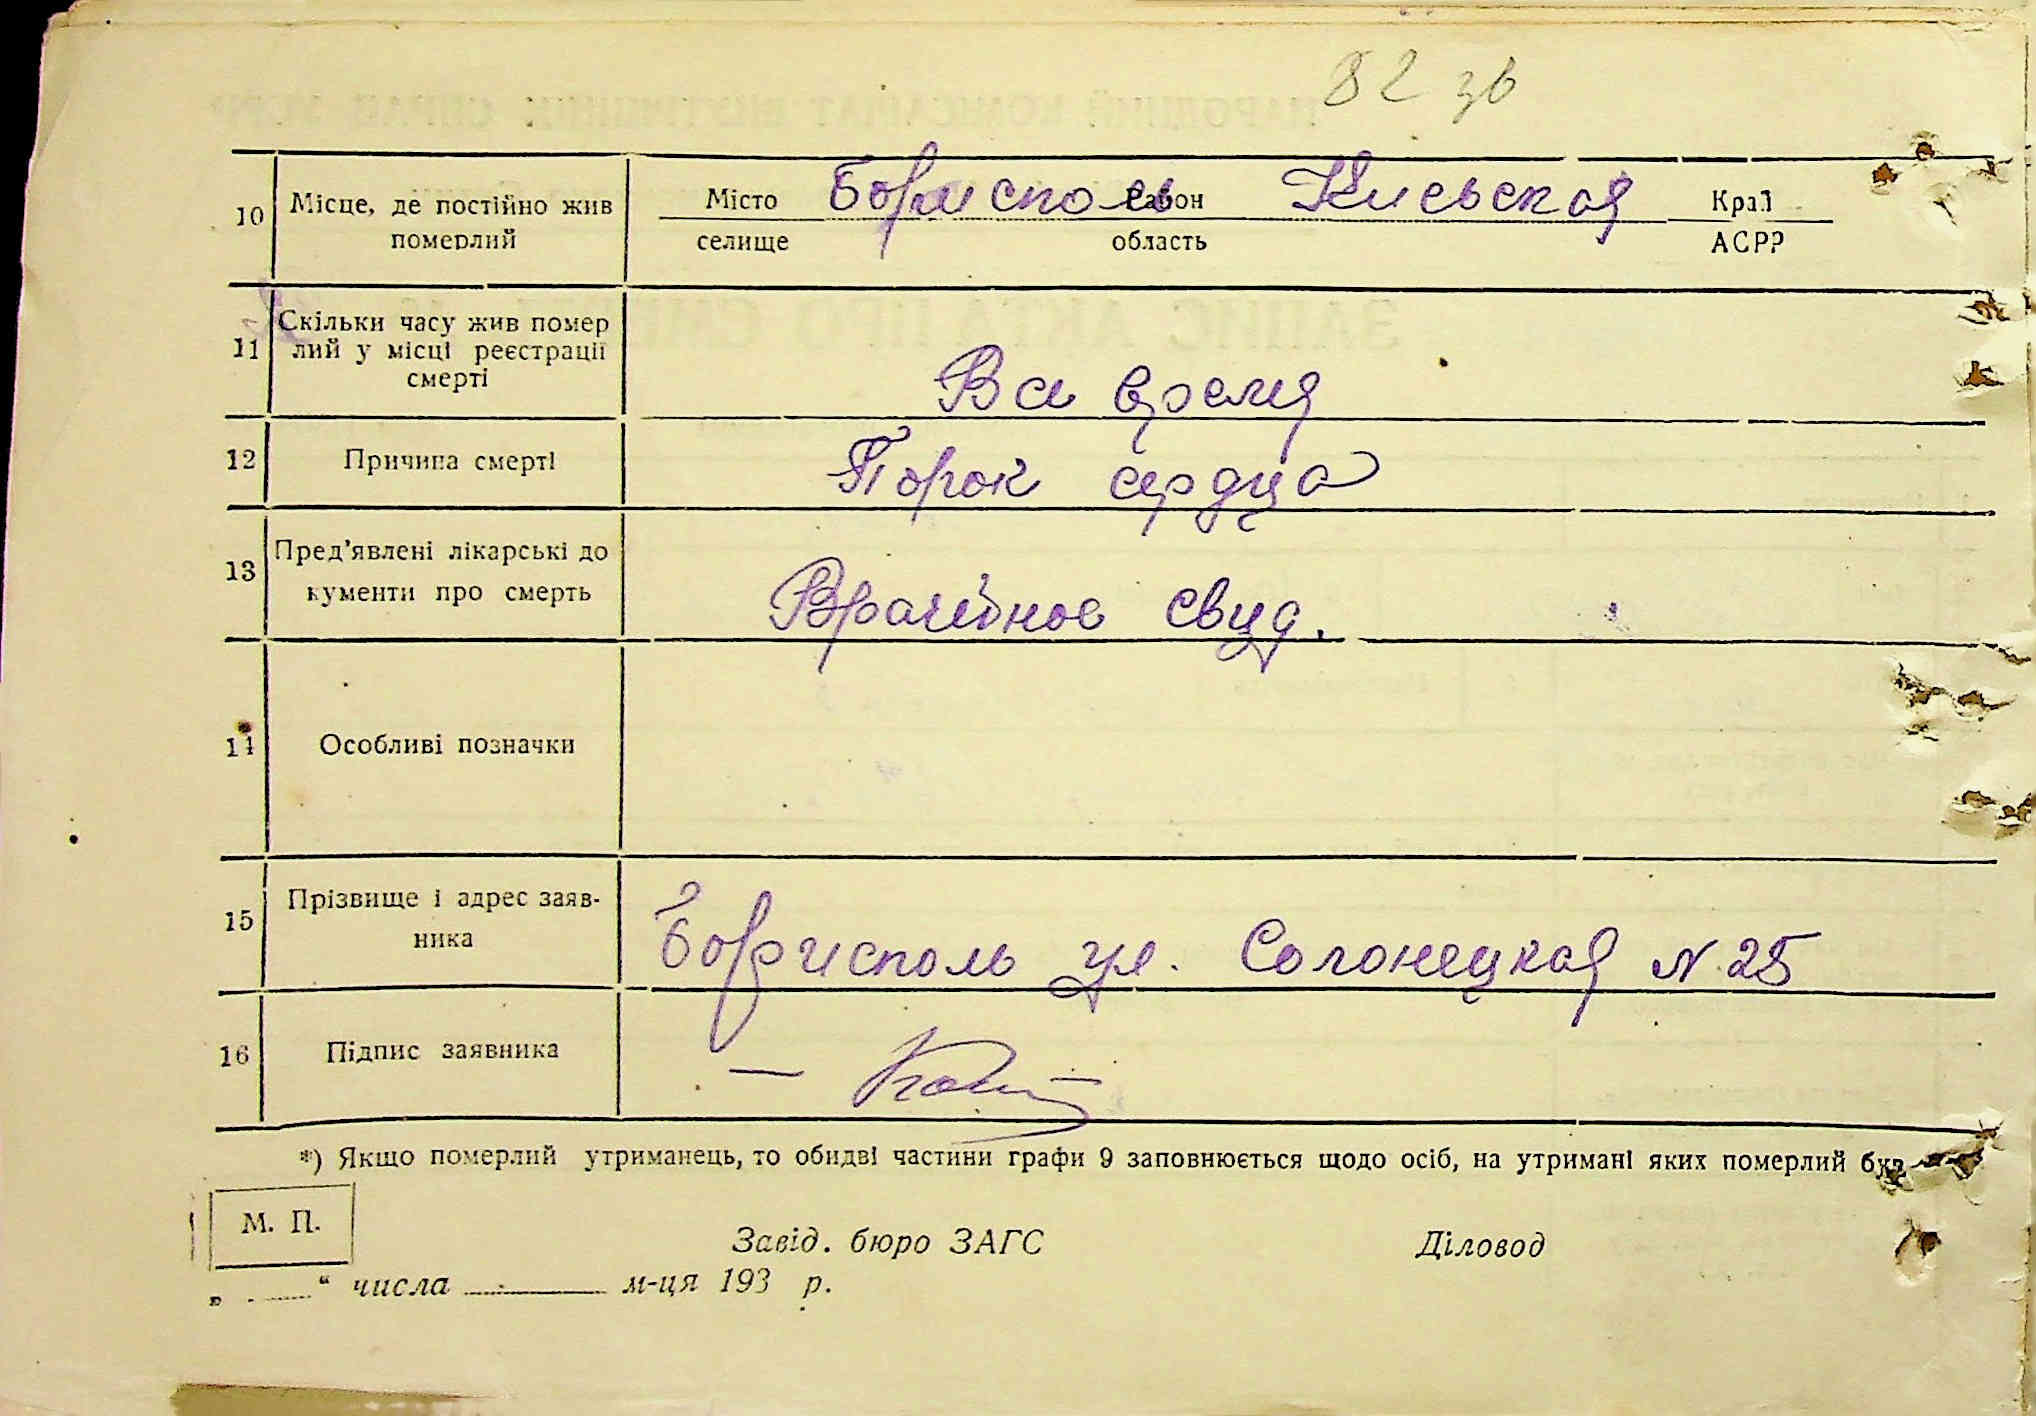 82 зв
10 Місце, де постійно жив померлий
Місто Борисполь Район Киевская Край
селище область АСРР
11 Скільки часу жив помер
лий у місці реєстрації
смерті
Все время
12 Причина смерті Порок сердца
13 Пред'явлені лікарські до
кументи про смерть
Врачебное свид.
14 Особливі позначки
15 Прізвище і адрес заяв-
ника
Борисполь ул. Солонецкая N 25
16 Підпис заявника
*) Якщо померлий утриманець, то обидві частини графи 9 заповнюється щодо осіб, на утримані яких померлий був
М. П.
Завід. бюро ЗАГС Діловод
„ “ числа м-ця 193 р.